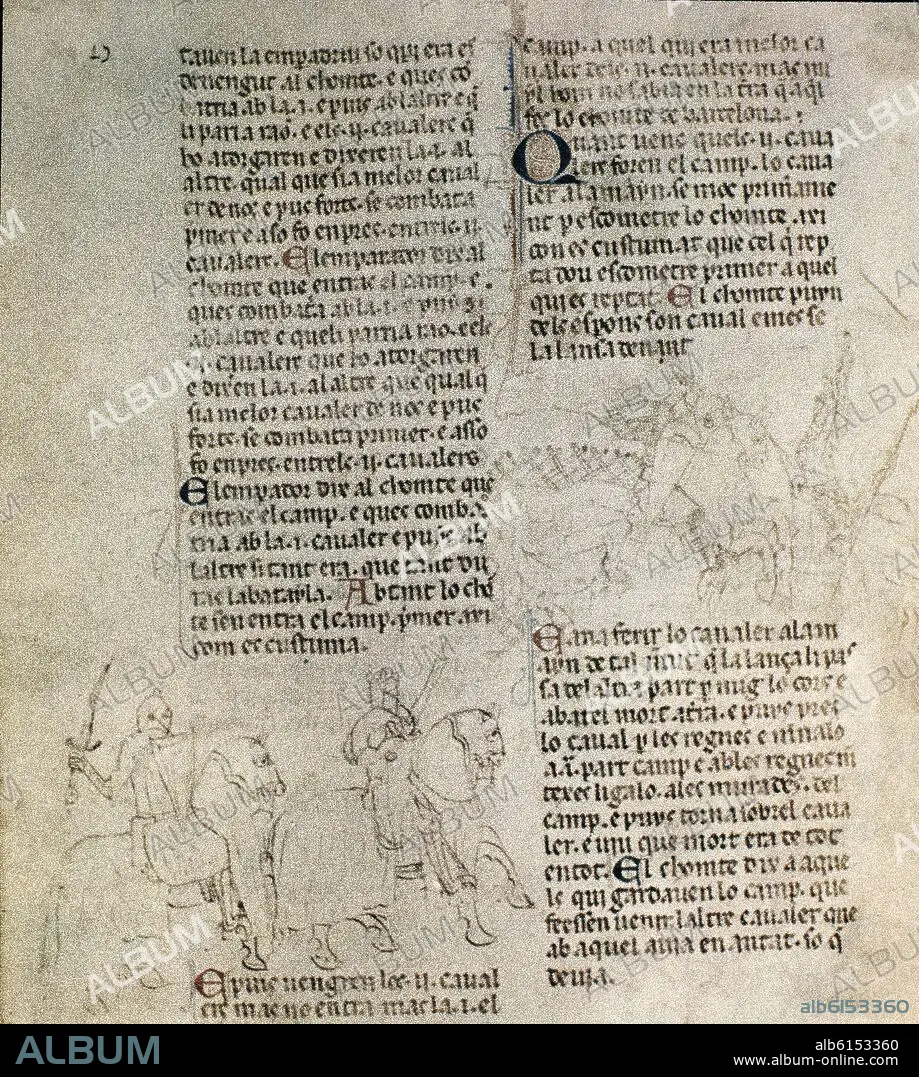 tauen la emparriu so qui era es
deuengut al chomte. e ques cō
batria ab la .i. e puis ab laltre e q̄
li paria rao. e ele .ii. caualers q̄
ho atorgaren e dixeren la .i. al
altre. qual que sia melor caual
er de nos e pus forts. se combata
pmer e aso fo en pres. entrels .ii.
caualers. Elemparador dix al
chomte que entras el camp. e
ques combata ab la .i. e puis
ab laltre e que li parria rao. e els
.ii. caualers que ho atorgaren
e dixen la .i. al altre que qual q̄
sia melor caualer de nos e pus
forts. se combata primer. e asso
fo en pres. entrels .ii. caualers
Elemparador dix al chomte que
entras el camp. e ques comba
tria ab la .i. caualer e puis ab
laltre si tant era. que tant du
ras la batayla. Ab tant lo chō
te sen entra el camp. p̄mer. axi
com es custuma.
E puis uengren les .ii. caual
ers mas no entra mas la .i. el
camp. aquel qui era melor ca
ualer dels .ii. caualers. mas nu
yl hom no sabia en la t̄ra q̄ aq̄l
fos lo chomte de barcelona.
Quant uenc quels .ii. caua
lers foren el camp. lo caua
ler alamayn. se moc primame
nt p escometre lo chomte. axi
con es custumat que cel q̄ rep
ta deu escometre primer a quel
qui es reptat. El chomte puyn
dels esperons son caual e mes se
la lansa denant
E ana ferir lo caualer alam
ayn de tal maner q̄ la lança li pas
sa del altra part p mig lo cors e
abatel mort a t̄ra. e puys pres
lo caual p les regnes e menalo
a .i. part camp e ab les regnes m
texes ligalo. a les murades. del
camp. e puys torna sobrel caua
ler. e uiu que mort era de tot
en tot. El chomte dix a aque
ls qui gardauen lo camp. que
feessen uenir laltre caualer que
ab aquel auia en antat. so q̄
deuia.
ALBUM
alb6153360
alb6153360
www.album-online.com